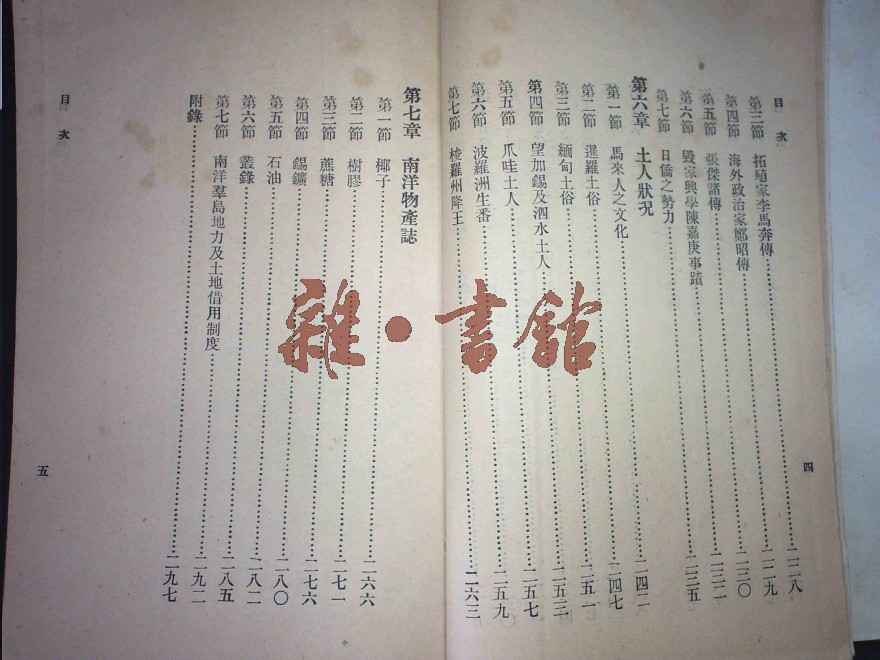 目次
第三節 拓殖家李馬奔傳……二二八
第四節 海外政治家鄭昭傳……二二九
第五節 張傑諸傳……二三〇
第六節 毀家興學陳嘉庚事蹟……二三二
第七節 日僑之勢力……二三五
第六章 土人狀況
第一節 馬來人之文化……二四二
第二節 暹羅土俗……二四七
第三節 緬甸土俗……二五一
第四節 望加錫及泗水土人……二五三
第五節 爪哇土人……二五七
第六節 波羅洲生番……二五九
第七節 梭羅州降王……二六三
四
目次
第七章 南洋物產誌
第一節 椰子……二六六
第二節 樹膠……二七一
第三節 蔗糖……二七六
第四節 錫鑛……二八〇
第五節 石油……二八二
第六節 叢錄……二八五
第七節 南洋羣島地力及土地借用制度……二九二
附錄……二九七
五
雜·書館